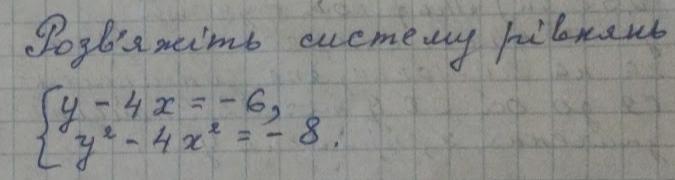 Розв'яжіть систему рівнянь
y - 4x = -6,
y² - 4x² = -8.